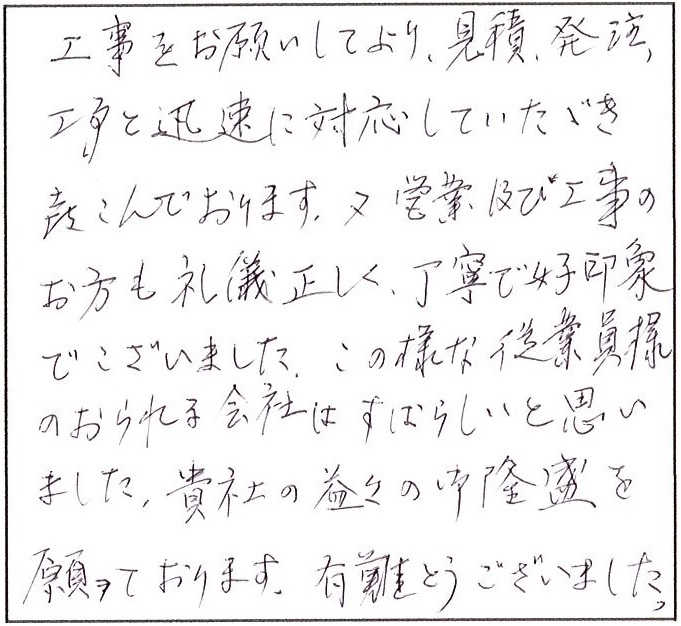 工事をお願いしてより、見積、発注、
工事と迅速に対応していただき
喜こんでおります。又営業及び工事の
お方も礼儀正しく、丁寧で好印象
でございました。この様な従業員様
のおられる会社はすばらしいと思い
ました。貴社の益々の御隆盛を
願っております。有難とうございました。